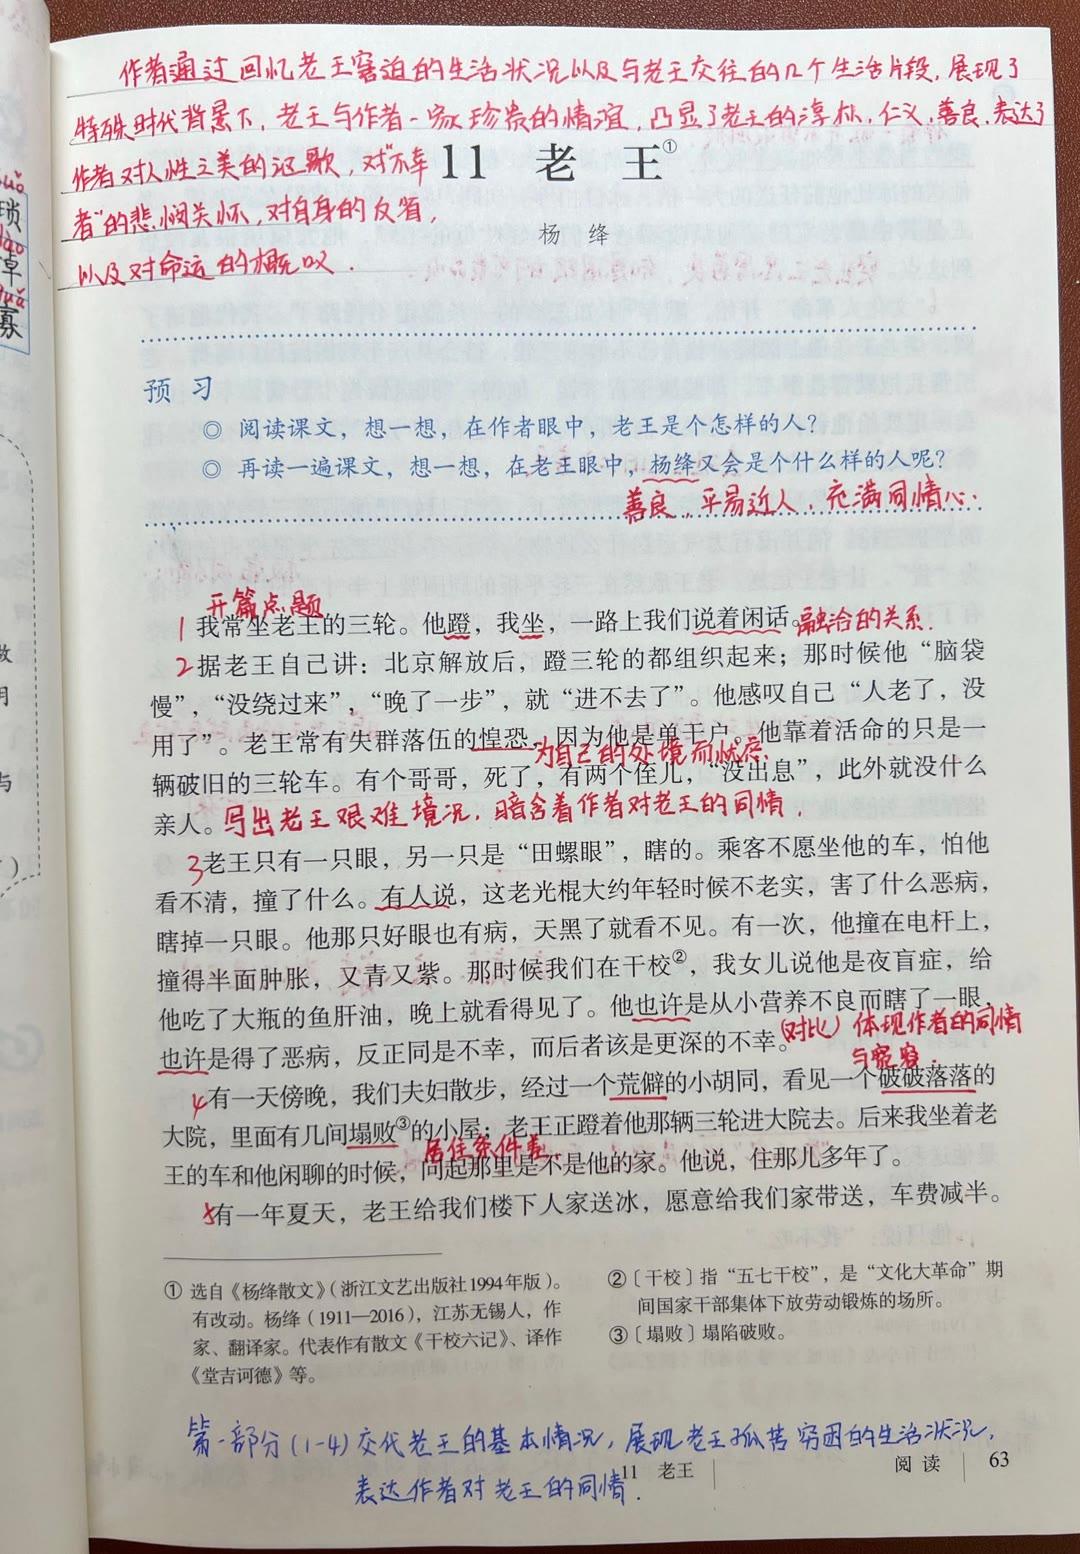 作者通过回忆老王窘迫的生活状况以及与老王交往的几个生活片段,展现了
特殊时代背景下,老王与作者一家珍贵的情谊,凸显了老王的淳朴,仁义,善良,表达了
作者对人性之美的讴歌,对"不幸
者"的悲悯关怀,对自身的反省,
以及对命运的慨叹.
11 老王①
杨绛
预习
◎ 阅读课文,想一想,在作者眼中,老王是个怎样的人?
◎ 再读一遍课文,想一想,在老王眼中,杨绛又会是个什么样的人呢?
善良,平易近人,充满同情心.
开篇点题
1 我常坐老王的三轮。他蹬,我坐,一路上我们说着闲话。融洽的关系.
2 据老王自己讲:北京解放后,蹬三轮的都组织起来;那时候他“脑袋
慢”,“没绕过来”,“晚了一步”,就“进不去了”。他感叹自己“人老了,没
用了”。老王常有失群落伍的惶恐,因为他是单干户。他靠着活命的只是一
为自己的处境而忧虑.
辆破旧的三轮车。有个哥哥,死了,有两个侄儿,“没出息”,此外就没什么
亲人。写出老王艰难境况,暗含着作者对老王的同情.
3 老王只有一只眼,另一只是“田螺眼”,瞎的。乘客不愿坐他的车,怕他
看不清,撞了什么。有人说,这老光棍大约年轻时候不老实,害了什么恶病,
瞎掉一只眼。他那只好眼也有病,天黑了就看不见。有一次,他撞在电杆上,
撞得半面肿胀,又青又紫。那时候我们在干校②,我女儿说他是夜盲症,给
他吃了大瓶的鱼肝油,晚上就看得见了。他也许是从小营养不良而瞎了一眼,
也许是得了恶病,反正同是不幸,而后者该是更深的不幸。(对比)体现作者的同情
与宽容.
4 有一天傍晚,我们夫妇散步,经过一个荒僻的小胡同,看见一个破破落落的
大院,里面有几间塌败③的小屋;老王正蹬着他那辆三轮进大院去。后来我坐着老
居住条件差
王的车和他闲聊的时候,问起那里是不是他的家。他说,住那儿多年了。
5 有一年夏天,老王给我们楼下人家送冰,愿意给我们家带送,车费减半。
① 选自《杨绛散文》(浙江文艺出版社1994年版)。
有改动。杨绛(1911—2016),江苏无锡人,作
家、翻译家。代表作有散文《干校六记》、译作
《堂吉诃德》等。
②〔干校〕指“五七干校”,是“文化大革命”期
间国家干部集体下放劳动锻炼的场所。
③〔塌败〕塌陷破败。
第一部分(1-4)交代老王的基本情况,展现老王孤苦穷困的生活状况,
表达作者对老王的同情.
11 老王
阅读 63